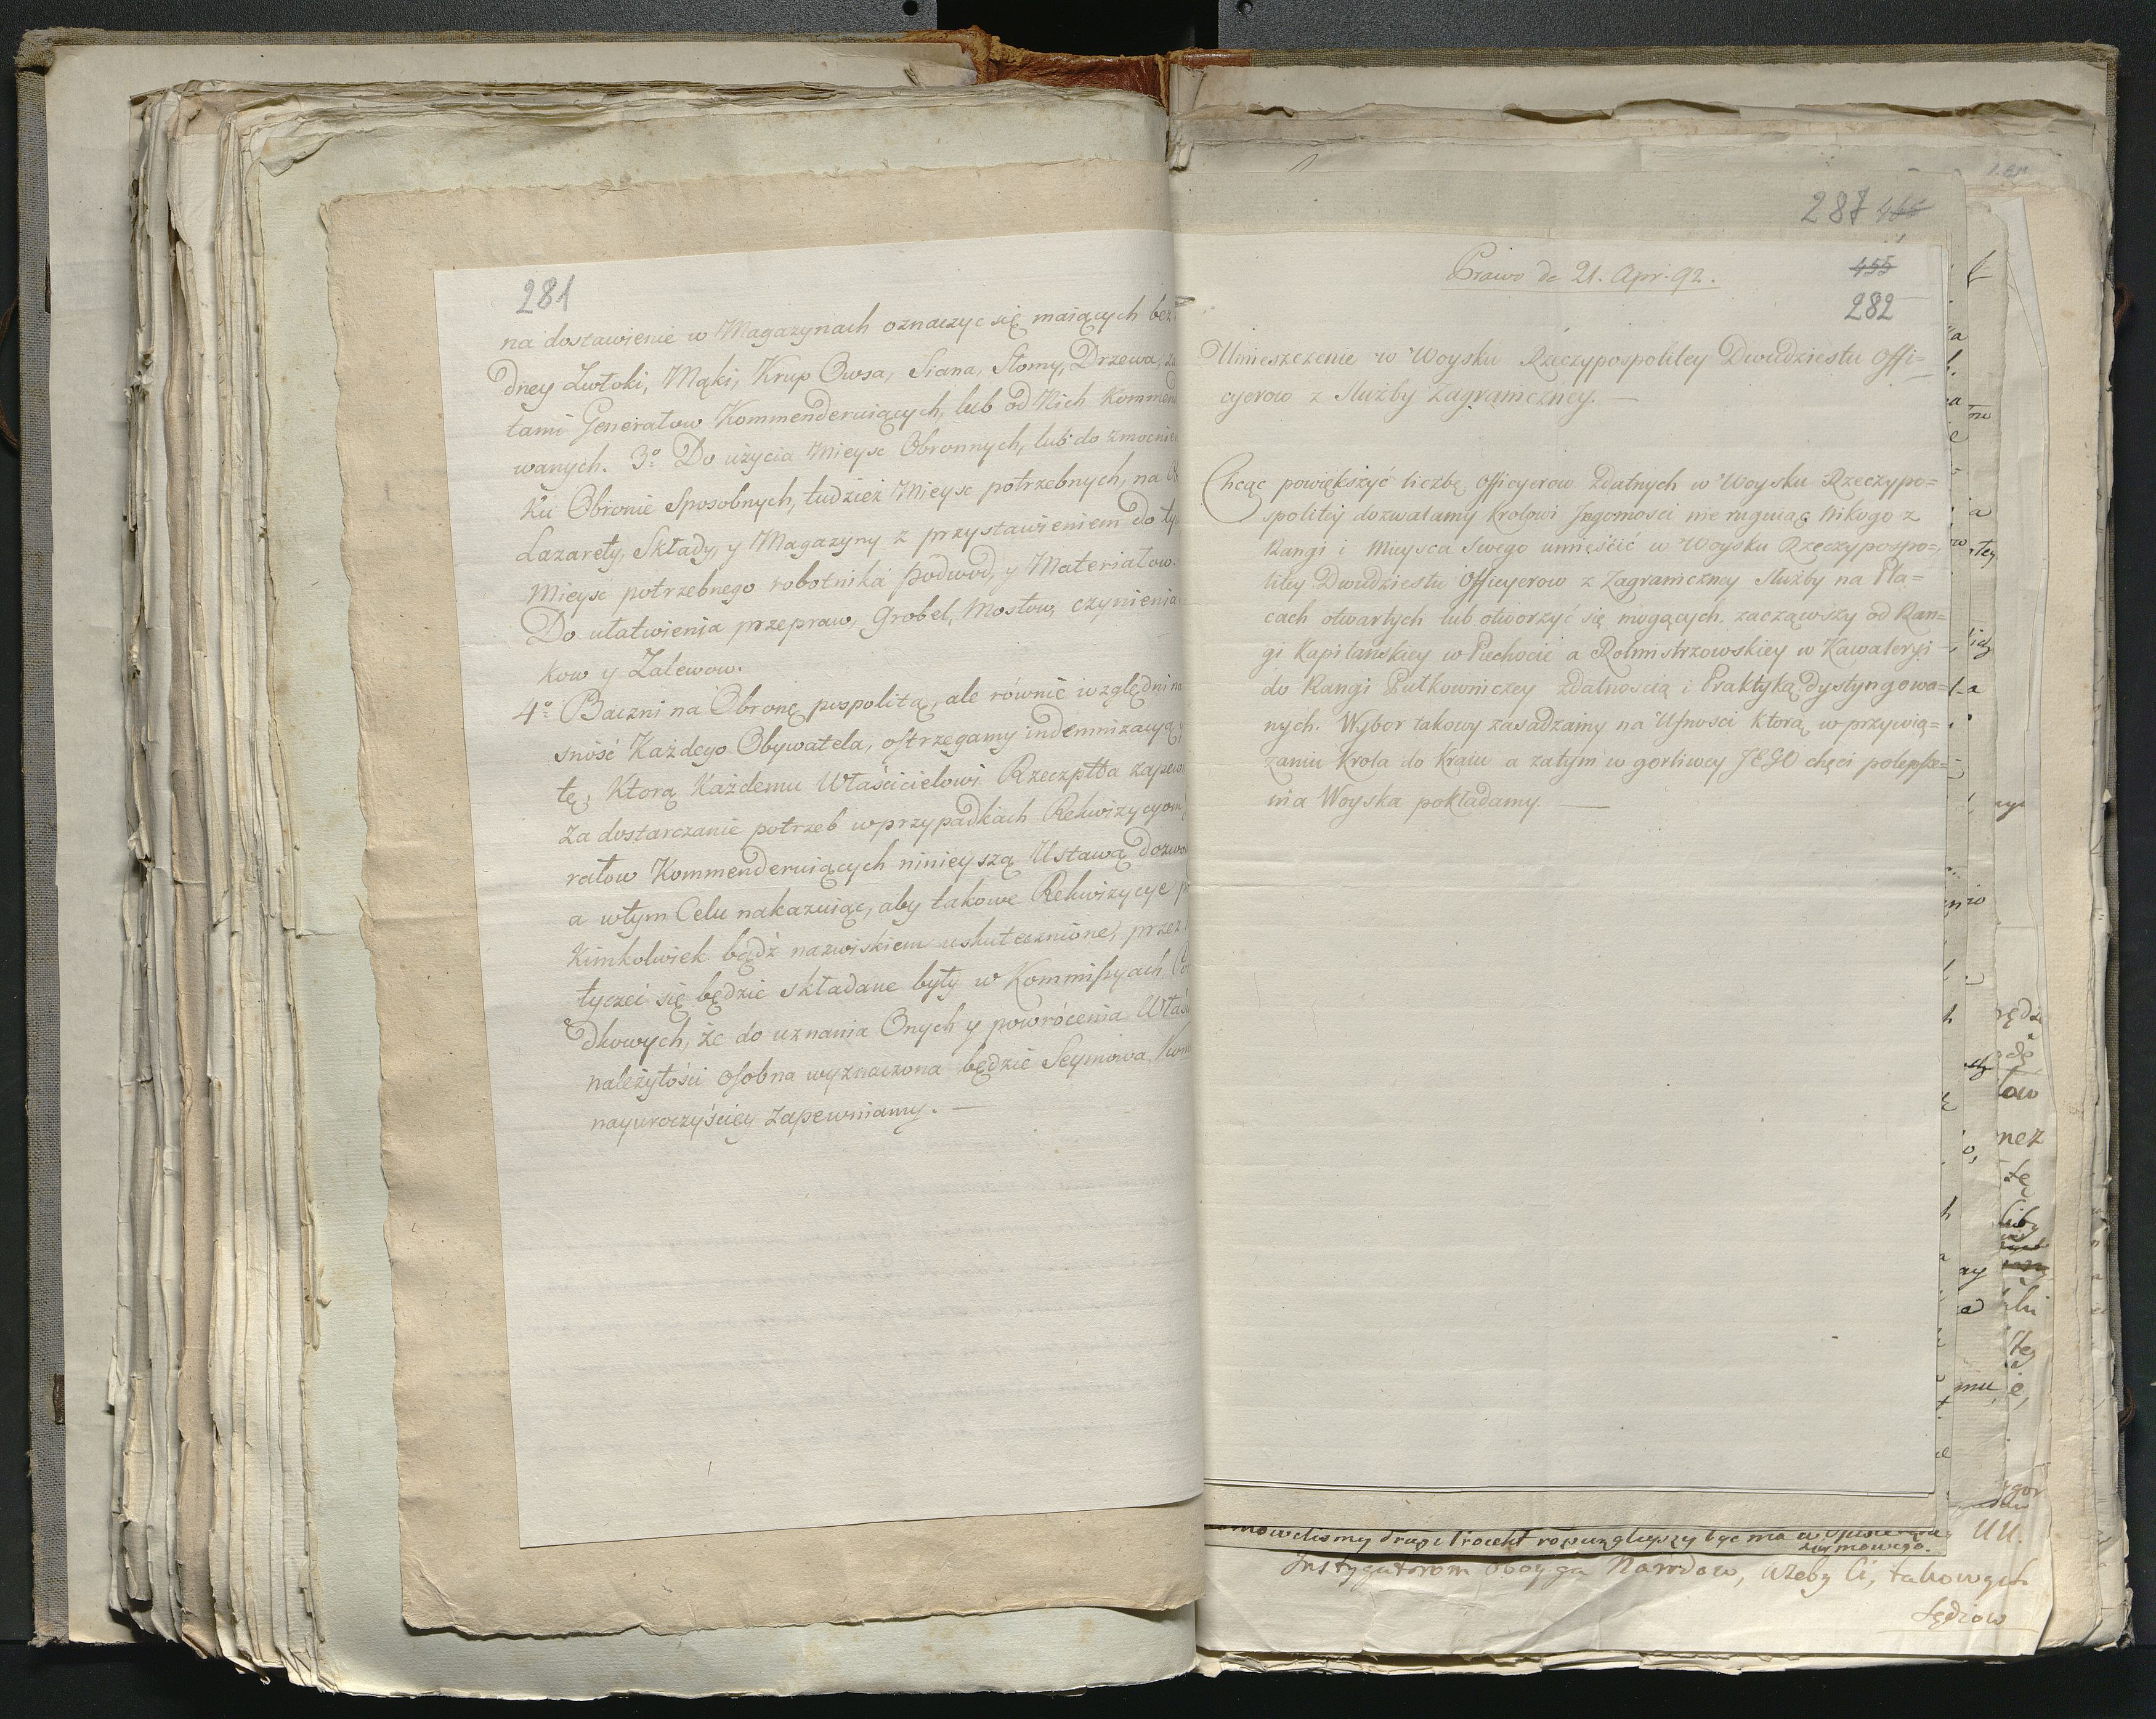 281
na dostawienie w Magazynach oznaczyc się maiących bez
dney Zwłoki, Mąki, Krup Owsa, Siana, Słomy, Drzewa, za
tami Generałow Kommenderuiących, lub od Nich Kommen
wanych. 3º Do użycia Mieysc Obronnych, lub do zmocnie
ku Obronie Sposobnych, tudzież Mieysc potrzebnych, na
Lazarety, Składy, y Magazyny z przystawieniem do ty
Mieysc potrzebnego robotnika podwod, y Materiałow.
Do ułatwienia przepraw, Grobel, Mostow, czynienia
kow y Zalewow.
4º Baczni na Obronę pospolitą, ale równie względni na
sność Każdego Obywatela, ostrzegamy indemnizacyą,
tę, Ktorą Każdemu Właścicielowi Rzeczpltta zapew
Za dostarczanie potrzeb w przypadkach Rekwizycyom
rałow Kommenderuiących ninieyszą Ustawą dozwo
a w tym Celu nakazuiąc, aby takowe Rekwizycye p
Kimkolwiek bądź nazwiskiem uskutecznione, przez
tyczei się będzie składane były w Kommissyach
dkowych, że do uznania Onych y powrócenia Właś
należytości osobna wyznaczona będzie Seymowa Kom
nayuroczyściey Zapewniamy. —
287 466
Prawo de 21. Apr. 92.
455
282
Umieszczenie w Woysku Rzeczypospolitey Dwudziestu Offi-
cyerow z Służby Zagraniczney. —
Chcąc powiększyć liczbę Officyerow Zdatnych w Woysku Rzeczypo=
spolitey dozwalamy Krolowi Jegomosci nie ruguiąc Nikogo z
Rangi i Mieysca Swego umieścić w Woysku Rzeczypospo=
litey Dwudziestu Officyerow z Zagraniczney Służby na Pla=
cach otwartych lub otworzyć się mogących, zacząwszy od Ran=
gi Kapitańskiey w Piechocie a Rotmistrzowskiey w Kawaleryi
do Rangi Pułkowniczey zdatnoscią i Praktyką dystyngowa=
nych. Wybor takowy zasadzamy na Ufnosci ktorą w przywią=
zaniu Krola do Kraiu a zatym w gorliwey JEGO chęci polepsze=
nia Woyska pokładamy. —
Instygatorom oboyga Narodow, ażeby Ci, takowych
Sędziow